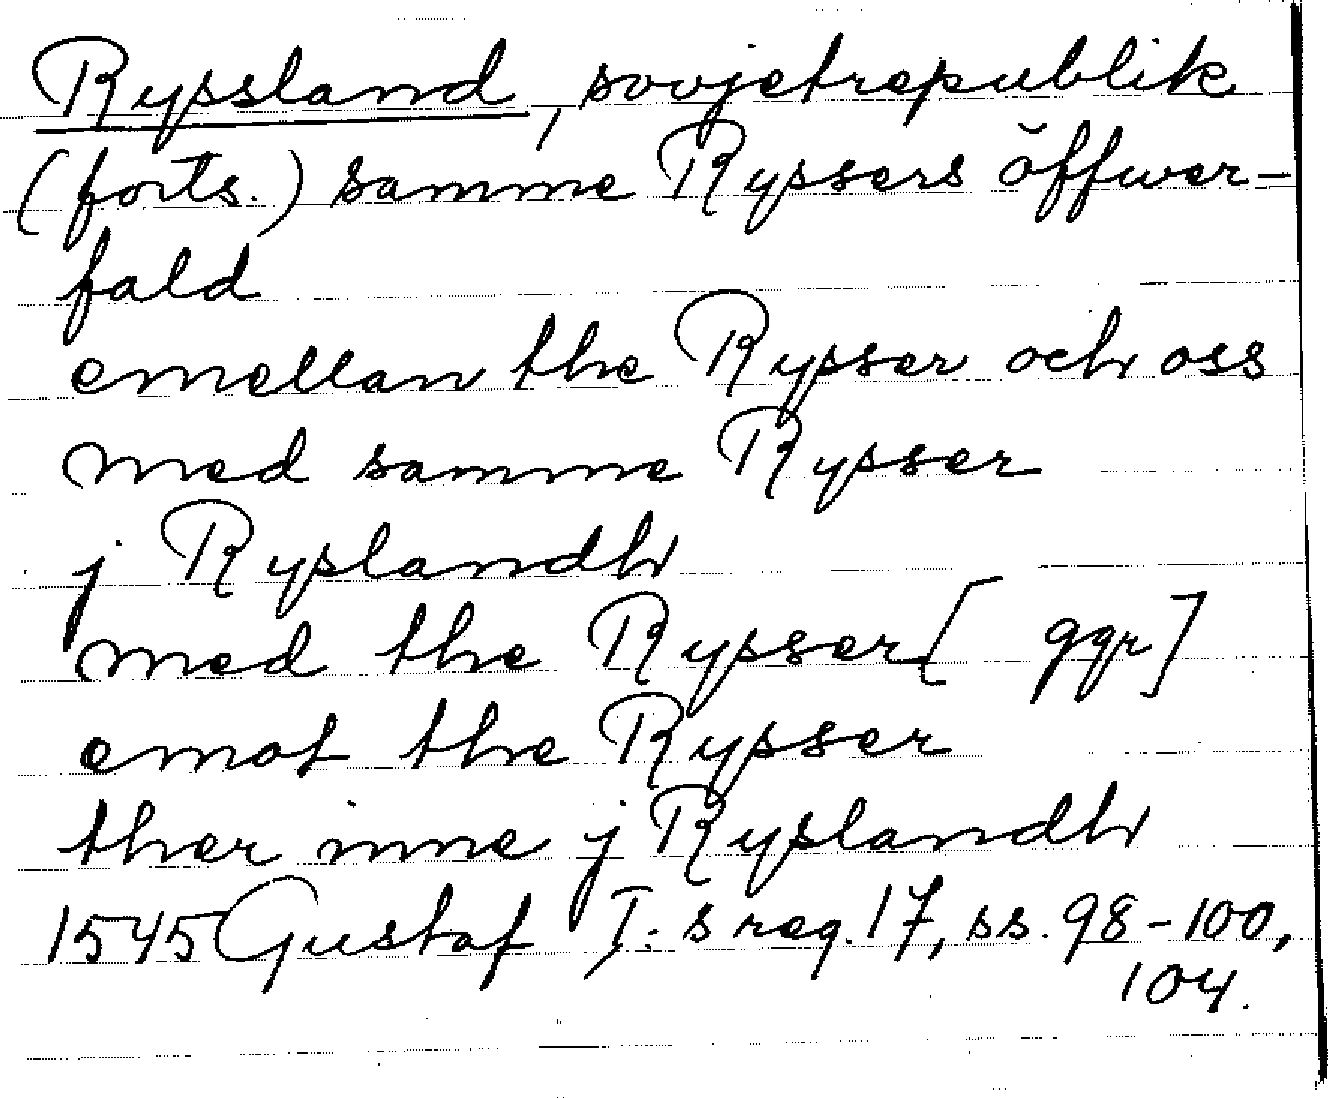 Ryssland, sovjetrepublik
(forts.) samme Ryssers öffwer-
fald
emellan the Rysser och oss
med samme Rysser
j Ryslandh
med the Rysser [ ggr]
emot the Rysser
ther inne j Ryslandh
1545 Gustaf I:s reg. 17, ss. 98-100,
104.